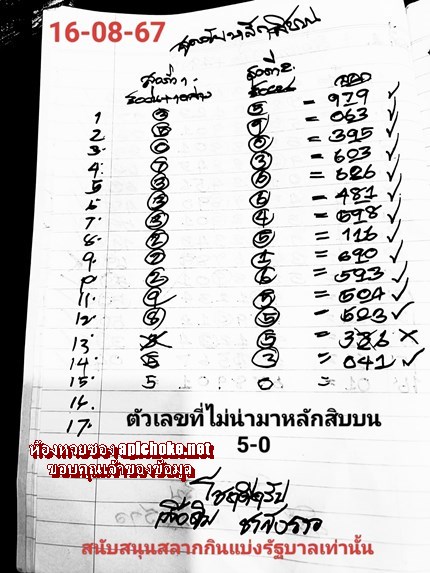 16-08-67
สูตรดับหลักสิบบน
สูตรที่ 1. สูตรที่ 2. ออก
1 3 5 = 979 ✓
2 5 9 = 063 ✓
3. 0 0 = 395 ✓
4. 7 3 = 603 ✓
5 3 6 = 626 ✓
6. 3 6 = 481 ✓
7. 3 4 = 598 ✓
8. 2 5 = 116 ✓
9. 2 1 = 690 ✓
10 2 6 = 593 ✓
11. 9 5 = 504 ✓
12. 8 5 = 523 ✓
13 8 5 = 386 ×
14. 5 3 = 041 ✓
15. 5 0 =
16.
17.
ตัวเลขที่ไม่น่ามาหลักสิบบน
5-0
ห้องหวยซอง apichoke.net
ขอบคุณเจ้าของข้อมูล
โชคดีครับ
สนับสนุนสลากกินแบ่งรัฐบาลเท่านั้น